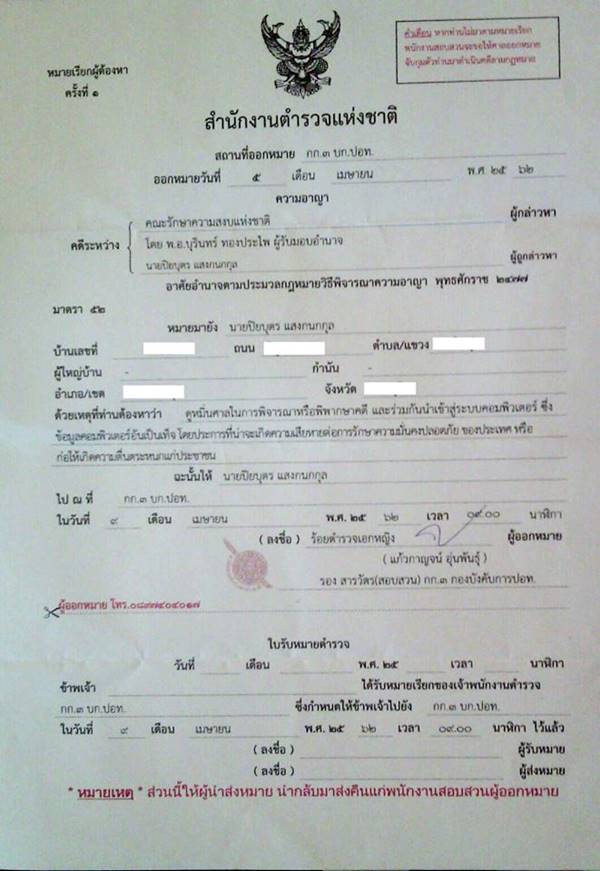 คำเตือน หากท่านไม่มาตามหมายเรียก
พนักงานสอบสวนจะขอให้ศาลออกหมาย
จับกุมตัวท่านมาดำเนินคดีตามกฎหมาย
หมายเรียกผู้ต้องหา
ครั้งที่ ๑
สำนักงานตำรวจแห่งชาติ
สถานที่ออกหมาย กก.๓ บก.ปอท.
ออกหมายวันที่ ๕ เดือน เมษายน พ.ศ. ๒๕ ๖๒
ความอาญา
คณะรักษาความสงบแห่งชาติ ผู้กล่าวหา
คดีระหว่าง โดย พ.อ.บุรินทร์ ทองประไพ ผู้รับมอบอำนาจ
นายปิยบุตร แสงกนกกุล ผู้ถูกกล่าวหา
อาศัยอำนาจตามประมวลกฎหมายวิธีพิจารณาความอาญา พุทธศักราช ๒๔๗๗
มาตรา ๕๒
หมายมายัง นายปิยบุตร แสงกนกกุล
บ้านเลขที่ ถนน ตำบล/แขวง
ผู้ใหญ่บ้าน - กำนัน -
อำเภอ/เขต จังหวัด
ด้วยเหตุที่ท่านต้องหาว่า ดูหมิ่นศาลในการพิจารณาหรือพิพากษาคดี และร่วมกันนำเข้าสู่ระบบคอมพิวเตอร์ ซึ่ง
ข้อมูลคอมพิวเตอร์อันเป็นเท็จ โดยประการที่น่าจะเกิดความเสียหายต่อการรักษาความมั่นคงปลอดภัย ของประเทศ หรือ
ก่อให้เกิดความตื่นตระหนกแก่ประชาชน
ฉะนั้นให้ นายปิยบุตร แสงกนกกุล
ไป ณ ที่ กก.๓ บก.ปอท.
ในวันที่ ๙ เดือน เมษายน พ.ศ. ๒๕ ๖๒ เวลา ๐๙.๐๐ นาฬิกา
( ลงชื่อ ) ร้อยตำรวจเอกหญิง ผู้ออกหมาย
( แก้วกาญจน์ อุ่นพันธุ์ )
รอง สารวัตร(สอบสวน) กก.๓ กองบังคับการปอท.
ผู้ออกหมาย โทร.๐๘๗๗๔๐๔๐๑๗
ใบรับหมายตำรวจ
วันที่ เดือน พ.ศ. ๒๕ เวลา นาฬิกา
ข้าพเจ้า ได้รับหมายเรียกของเจ้าพนักงานตำรวจ
กก.๓ บก.ปอท. ซึ่งกำหนดให้ข้าพเจ้าไปยัง กก.๓ บก.ปอท.
ในวันที่ ๙ เดือน เมษายน พ.ศ. ๒๕ ๖๒ เวลา ๐๙.๐๐ นาฬิกา ไว้แล้ว
( ลงชื่อ ) ผู้รับหมาย
( ลงชื่อ ) ผู้ส่งหมาย
* หมายเหตุ * ส่วนนี้ให้ผู้นำส่งหมาย นำกลับมาส่งคืนแก่พนักงานสอบสวนผู้ออกหมาย